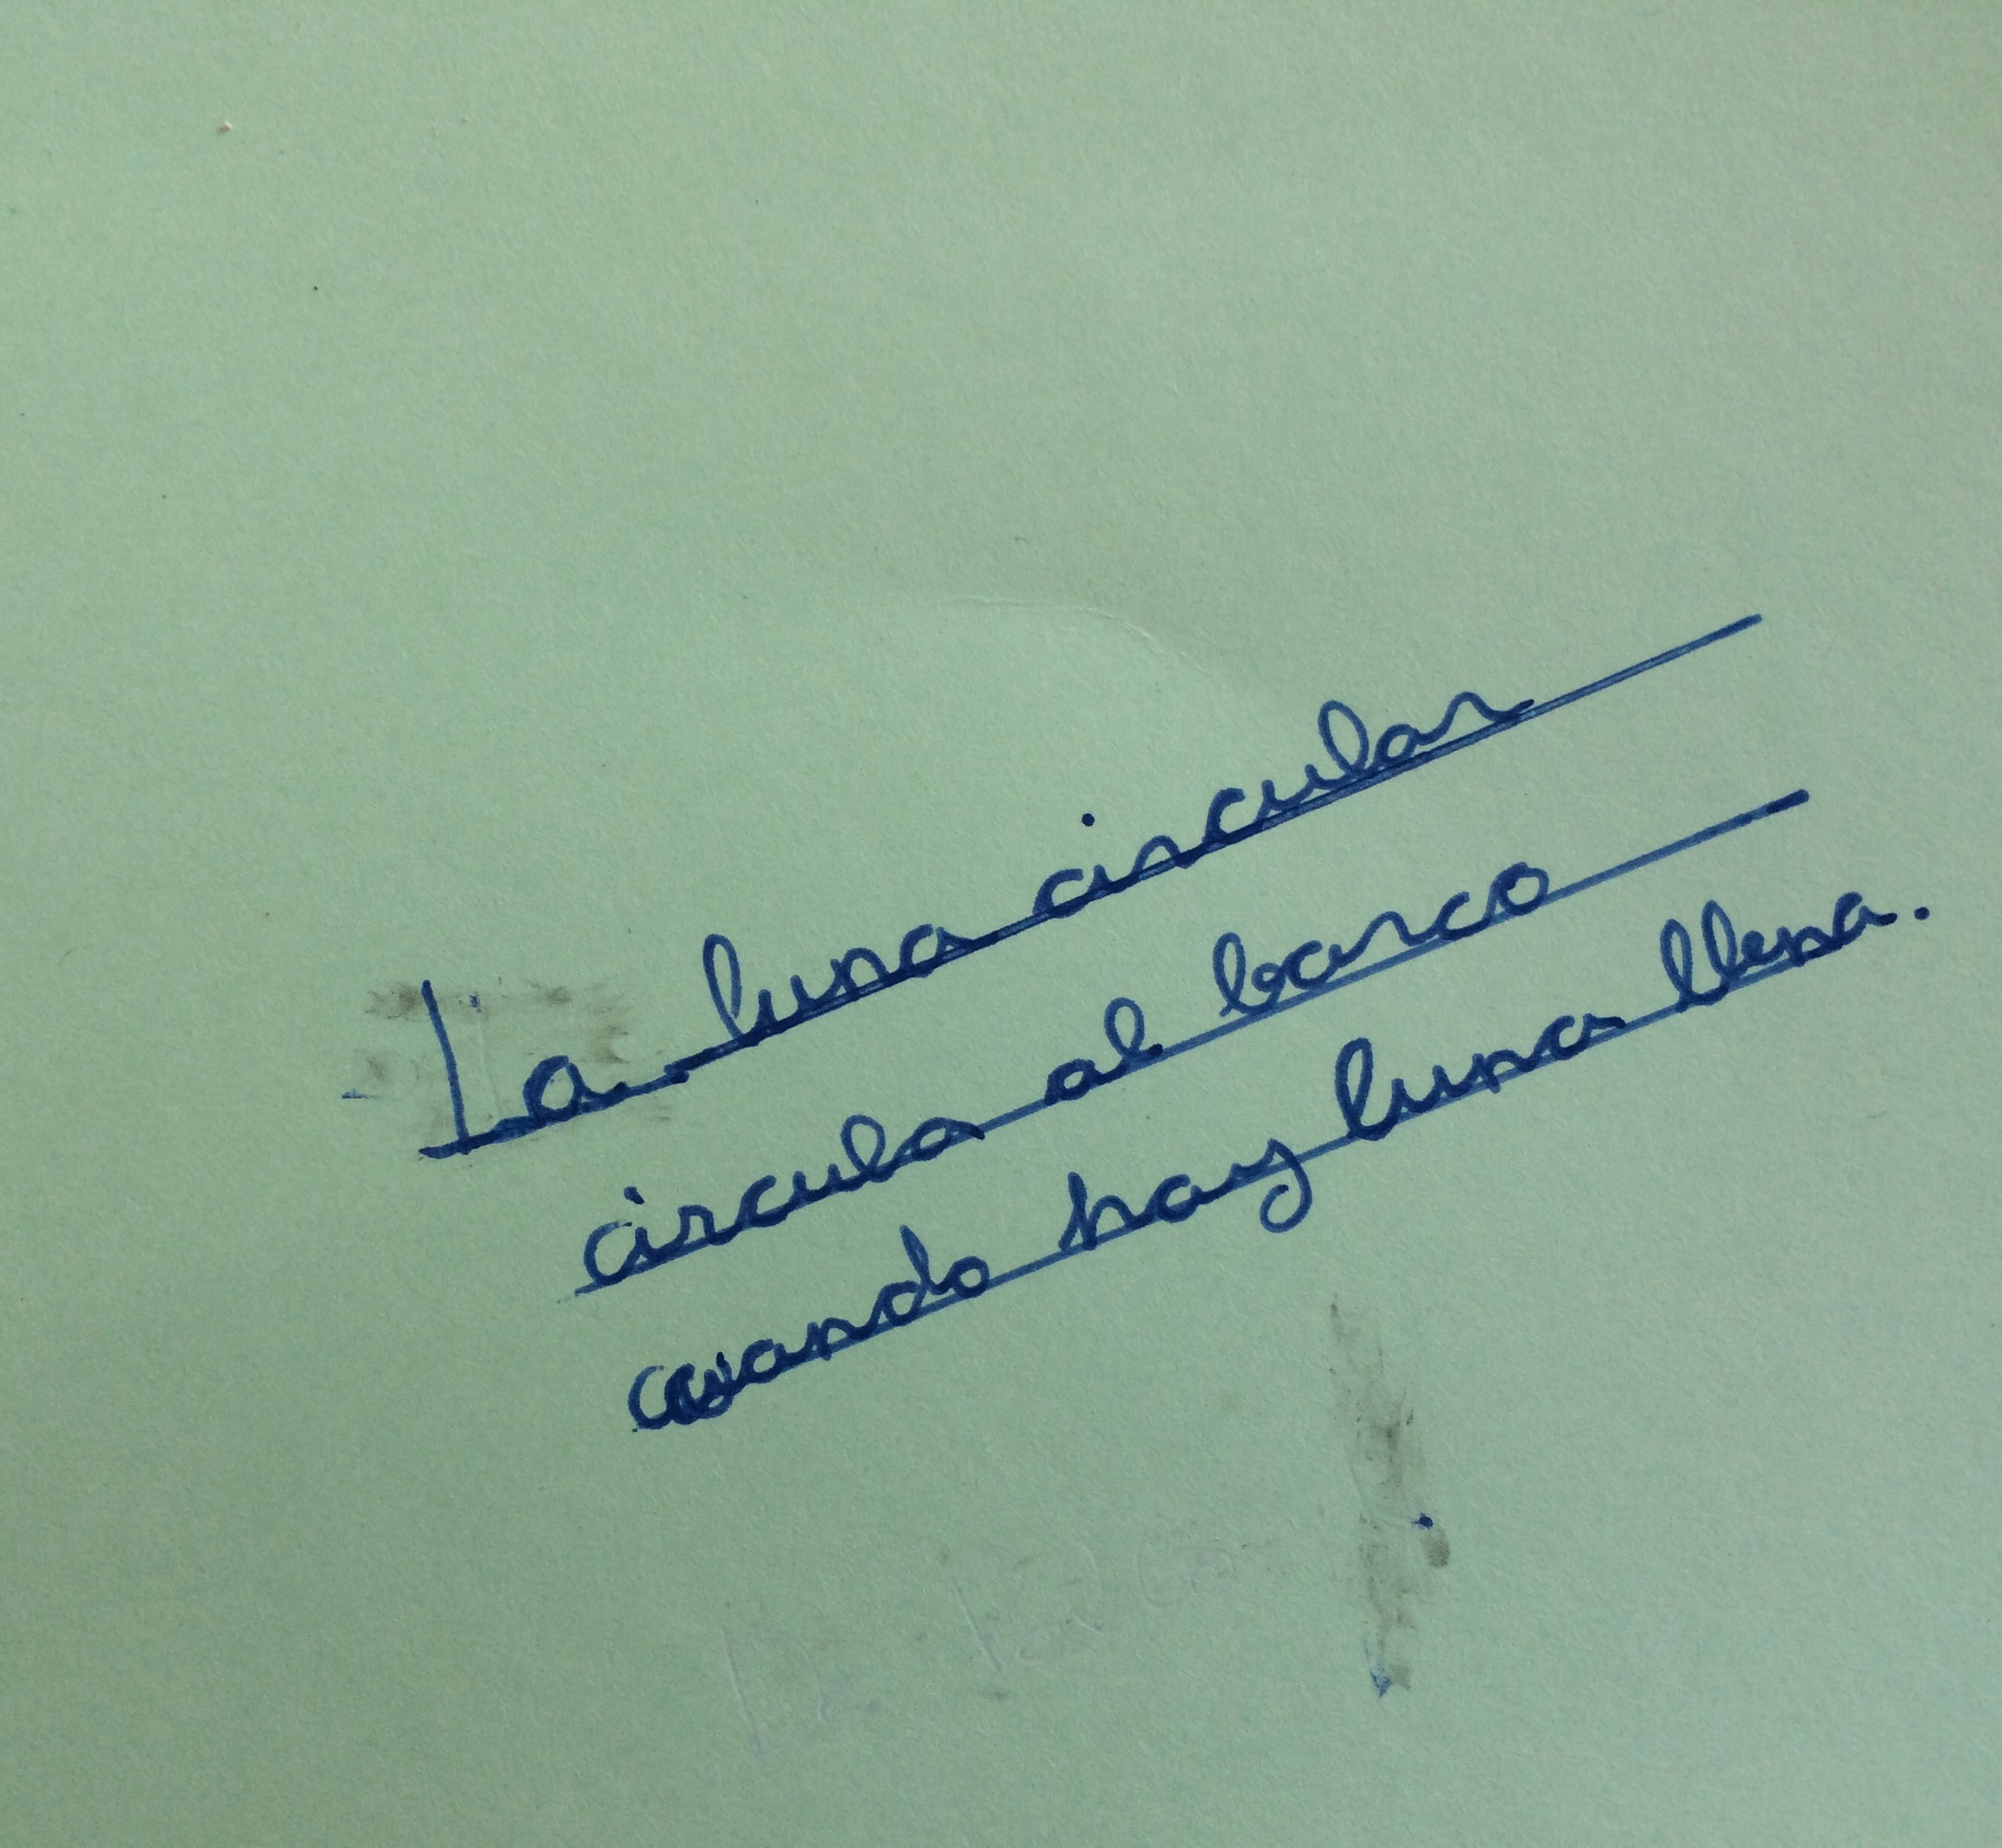 La luna circular
circula al barco
cuando hay luna llena.